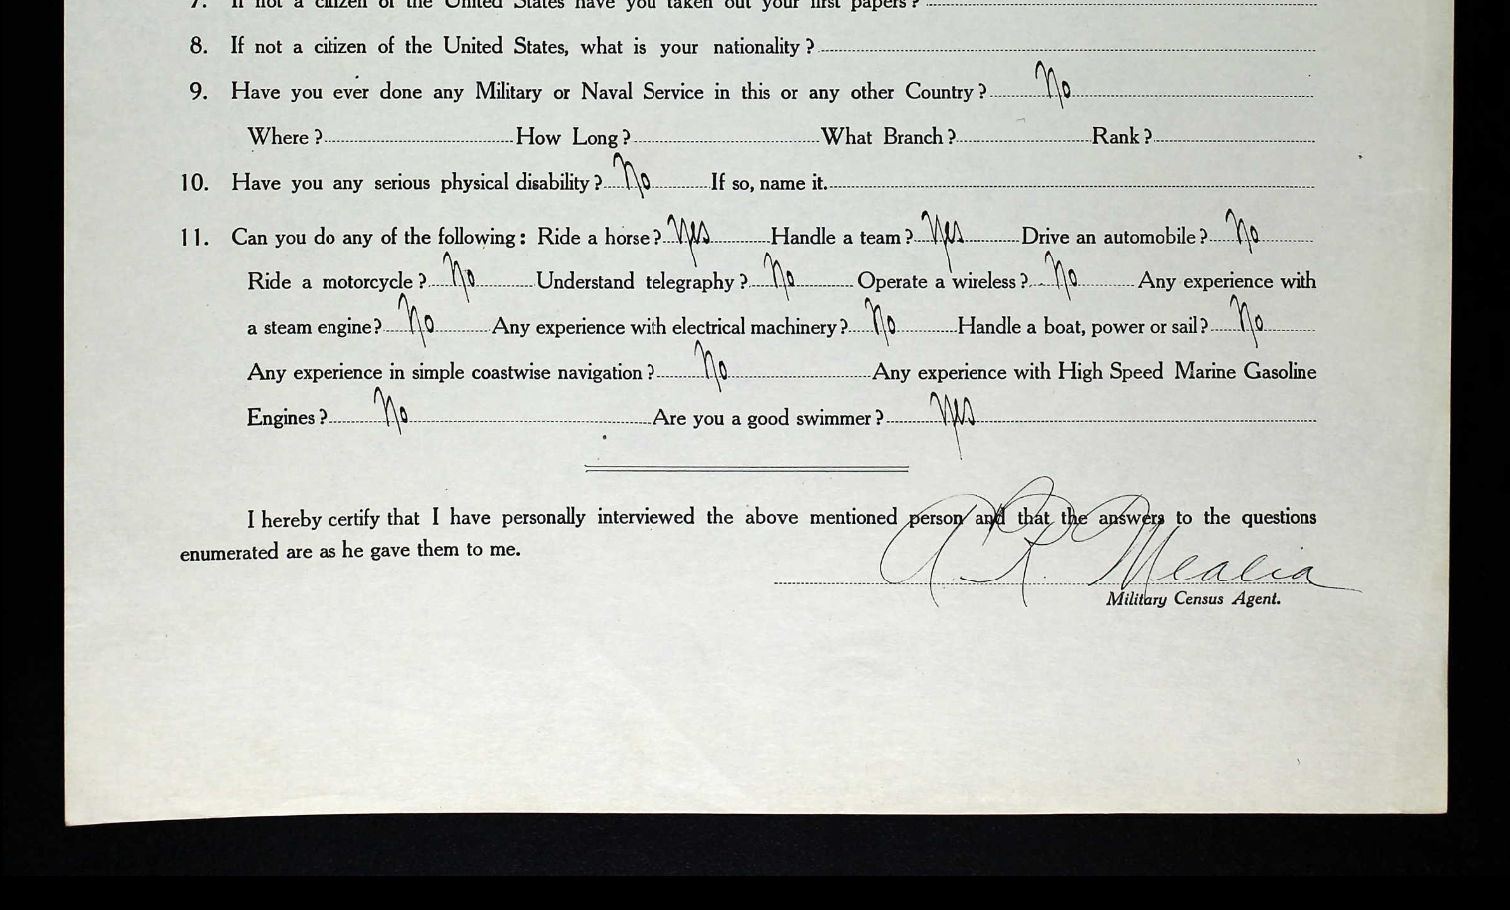 7. If not a citizen of the United States have you taken out your first papers?
8. If not a citizen of the United States, what is your nationality?
9. Have you ever done any Military or Naval Service in this or any other Country? No
Where? How Long? What Branch? Rank?
10. Have you any serious physical disability? No If so, name it.
11. Can you do any of the following: Ride a horse? Yes Handle a team? Yes Drive an automobile? No
Ride a motorcycle? No Understand telegraphy? No Operate a wireless? No Any experience with
a steam engine? No Any experience with electrical machinery? No Handle a boat, power or sail? No
Any experience in simple coastwise navigation? No Any experience with High Speed Marine Gasoline
Engines? No Are you a good swimmer? Yes
I hereby certify that I have personally interviewed the above mentioned person and that the answers to the questions
enumerated are as he gave them to me.
A. R. Mealia
Military Census Agent.